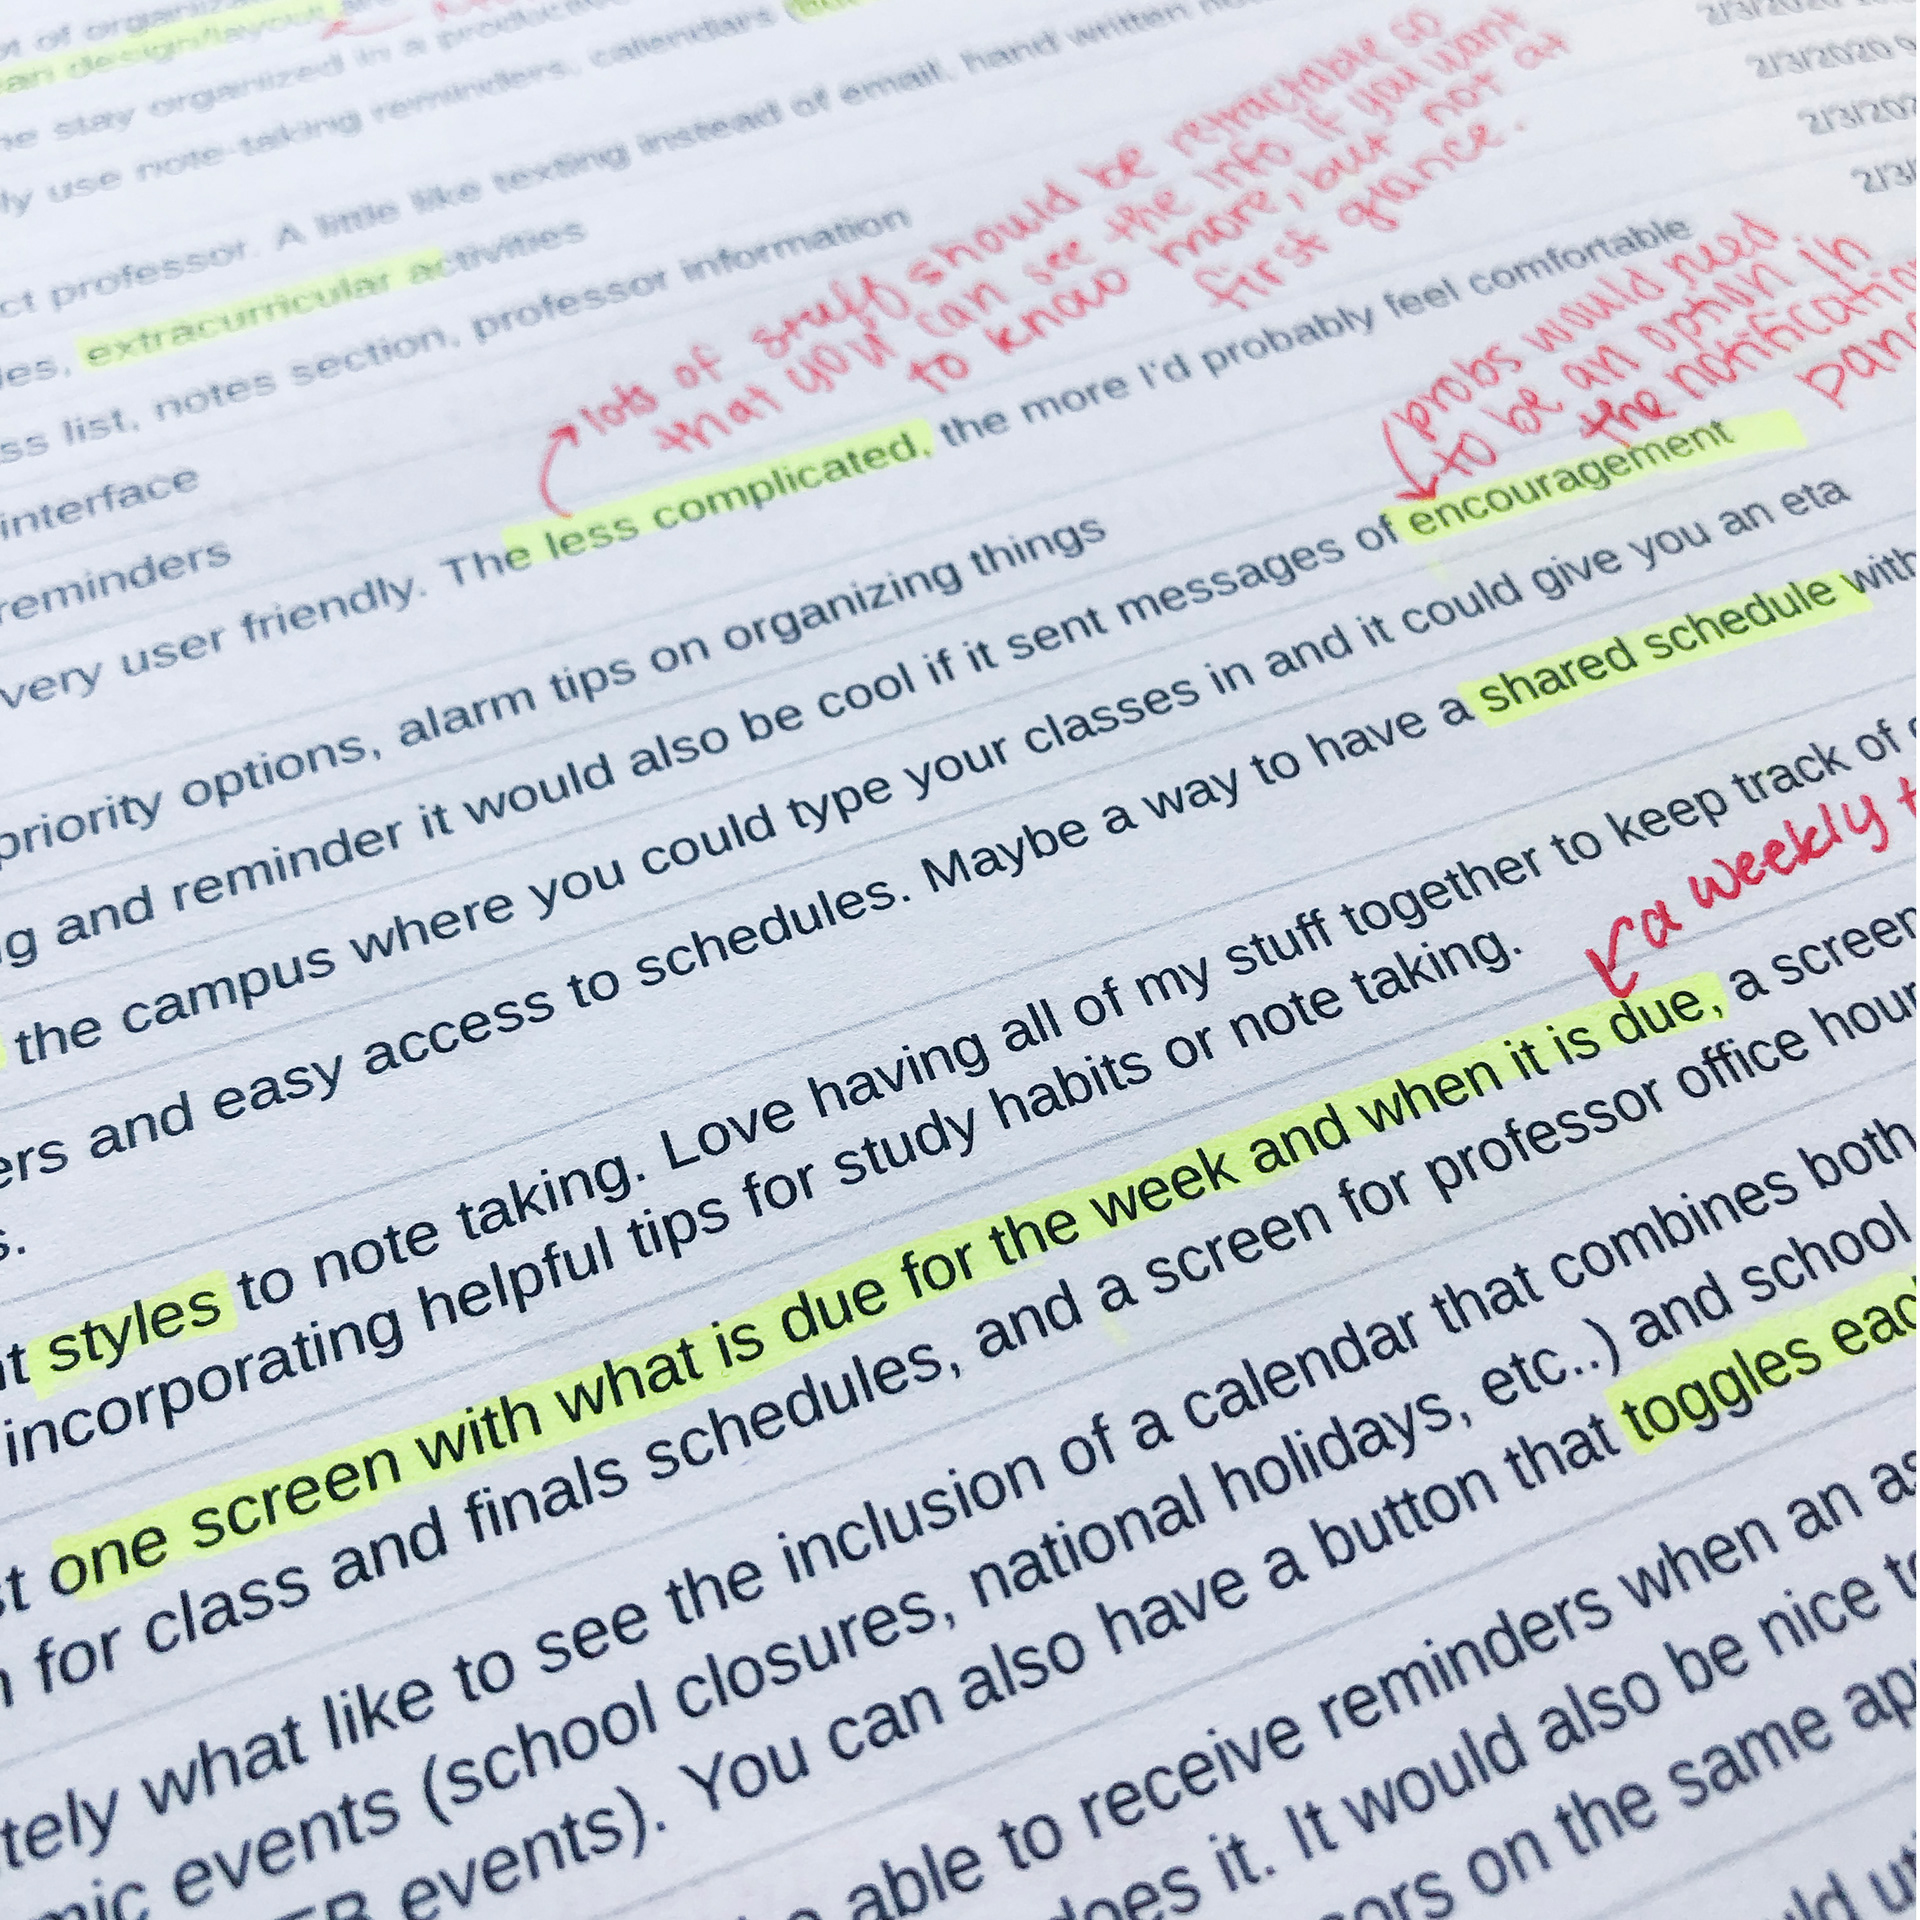 of organiz
an design/layout
he stay organized in a produc
ly use note-taking reminders, calendars
ct professor. A little like texting instead of email, hand written
es, extracurricular activities
ss list, notes section, professor information
interface
reminders
2/3/2020
2/3/2020 9
2/3/202
2/3/
lots of stuff should be retractable so
that you can see the info if you want
to know more, but not at
first glance.
very user friendly. The less complicated, the more I'd probably feel comfortable
probs would need
to be an option in
the notification
pan
priority options, alarm tips on organizing things
g and reminder it would also be cool if it sent messages of encouragement
the campus where you could type your classes in and it could give you an eta
ers and easy access to schedules. Maybe a way to have a shared schedule with
s.
t styles to note taking. Love having all of my stuff together to keep track of
incorporating helpful tips for study habits or note taking.
a weekly t
st one screen with what is due for the week and when it is due, a screen
n for class and finals schedules, and a screen for professor office hour
tely what like to see the inclusion of a calendar that combines both
mic events (school closures, national holidays, etc..) and school
events). You can also have a button that toggles eac
able to receive reminders when an as
does it. It would also be nice to
sors on the same ap
ld ut